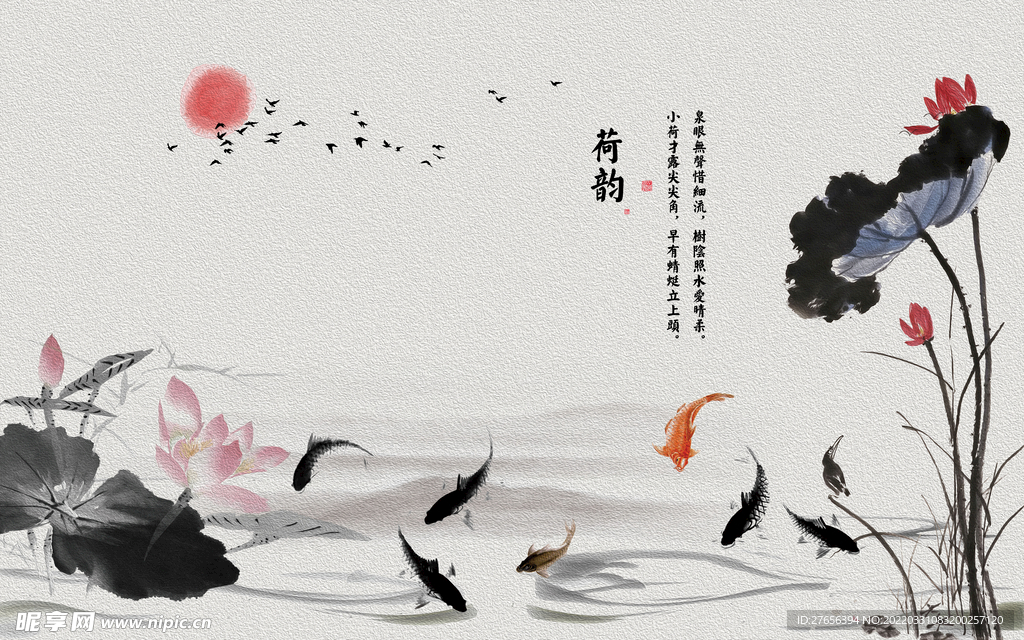 泉眼無聲惜細流，樹陰照水愛晴柔。
小荷才露尖尖角，早有蜻蜓立上頭。
荷韵
昵享网 www.nipic.cn
ID:27656394 NO:20220331083200257120